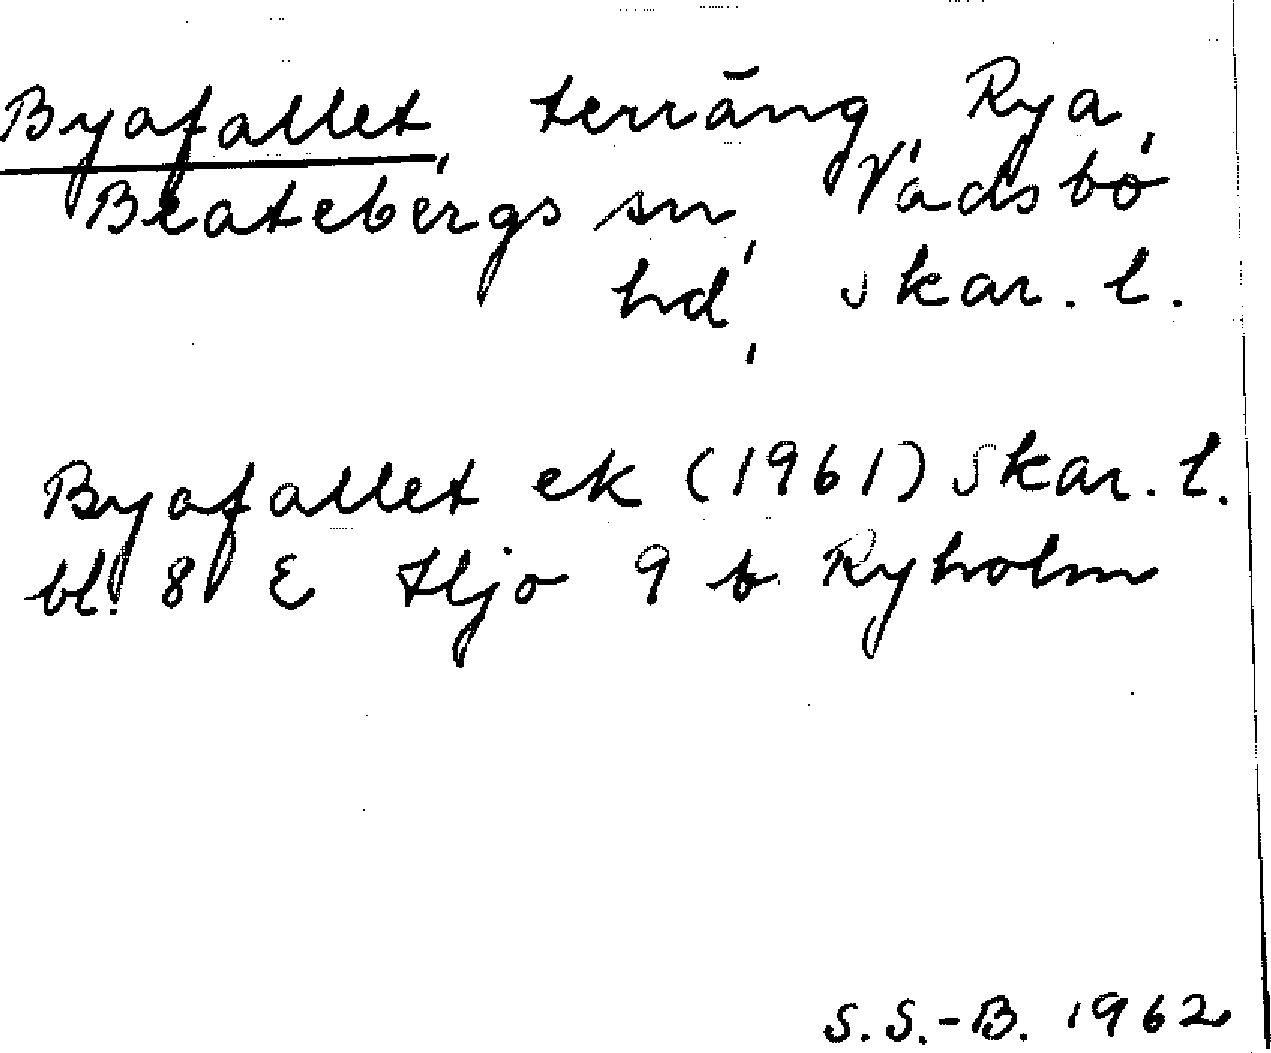 Byafallet, terräng, Rya,
Beatebergs sn, Vadsbo
hd, Skar. l.
Byafallet ek (1961) Skar. l.
bl. 8 E Hjo 9 b Ryholm
S. S.-B. 1962